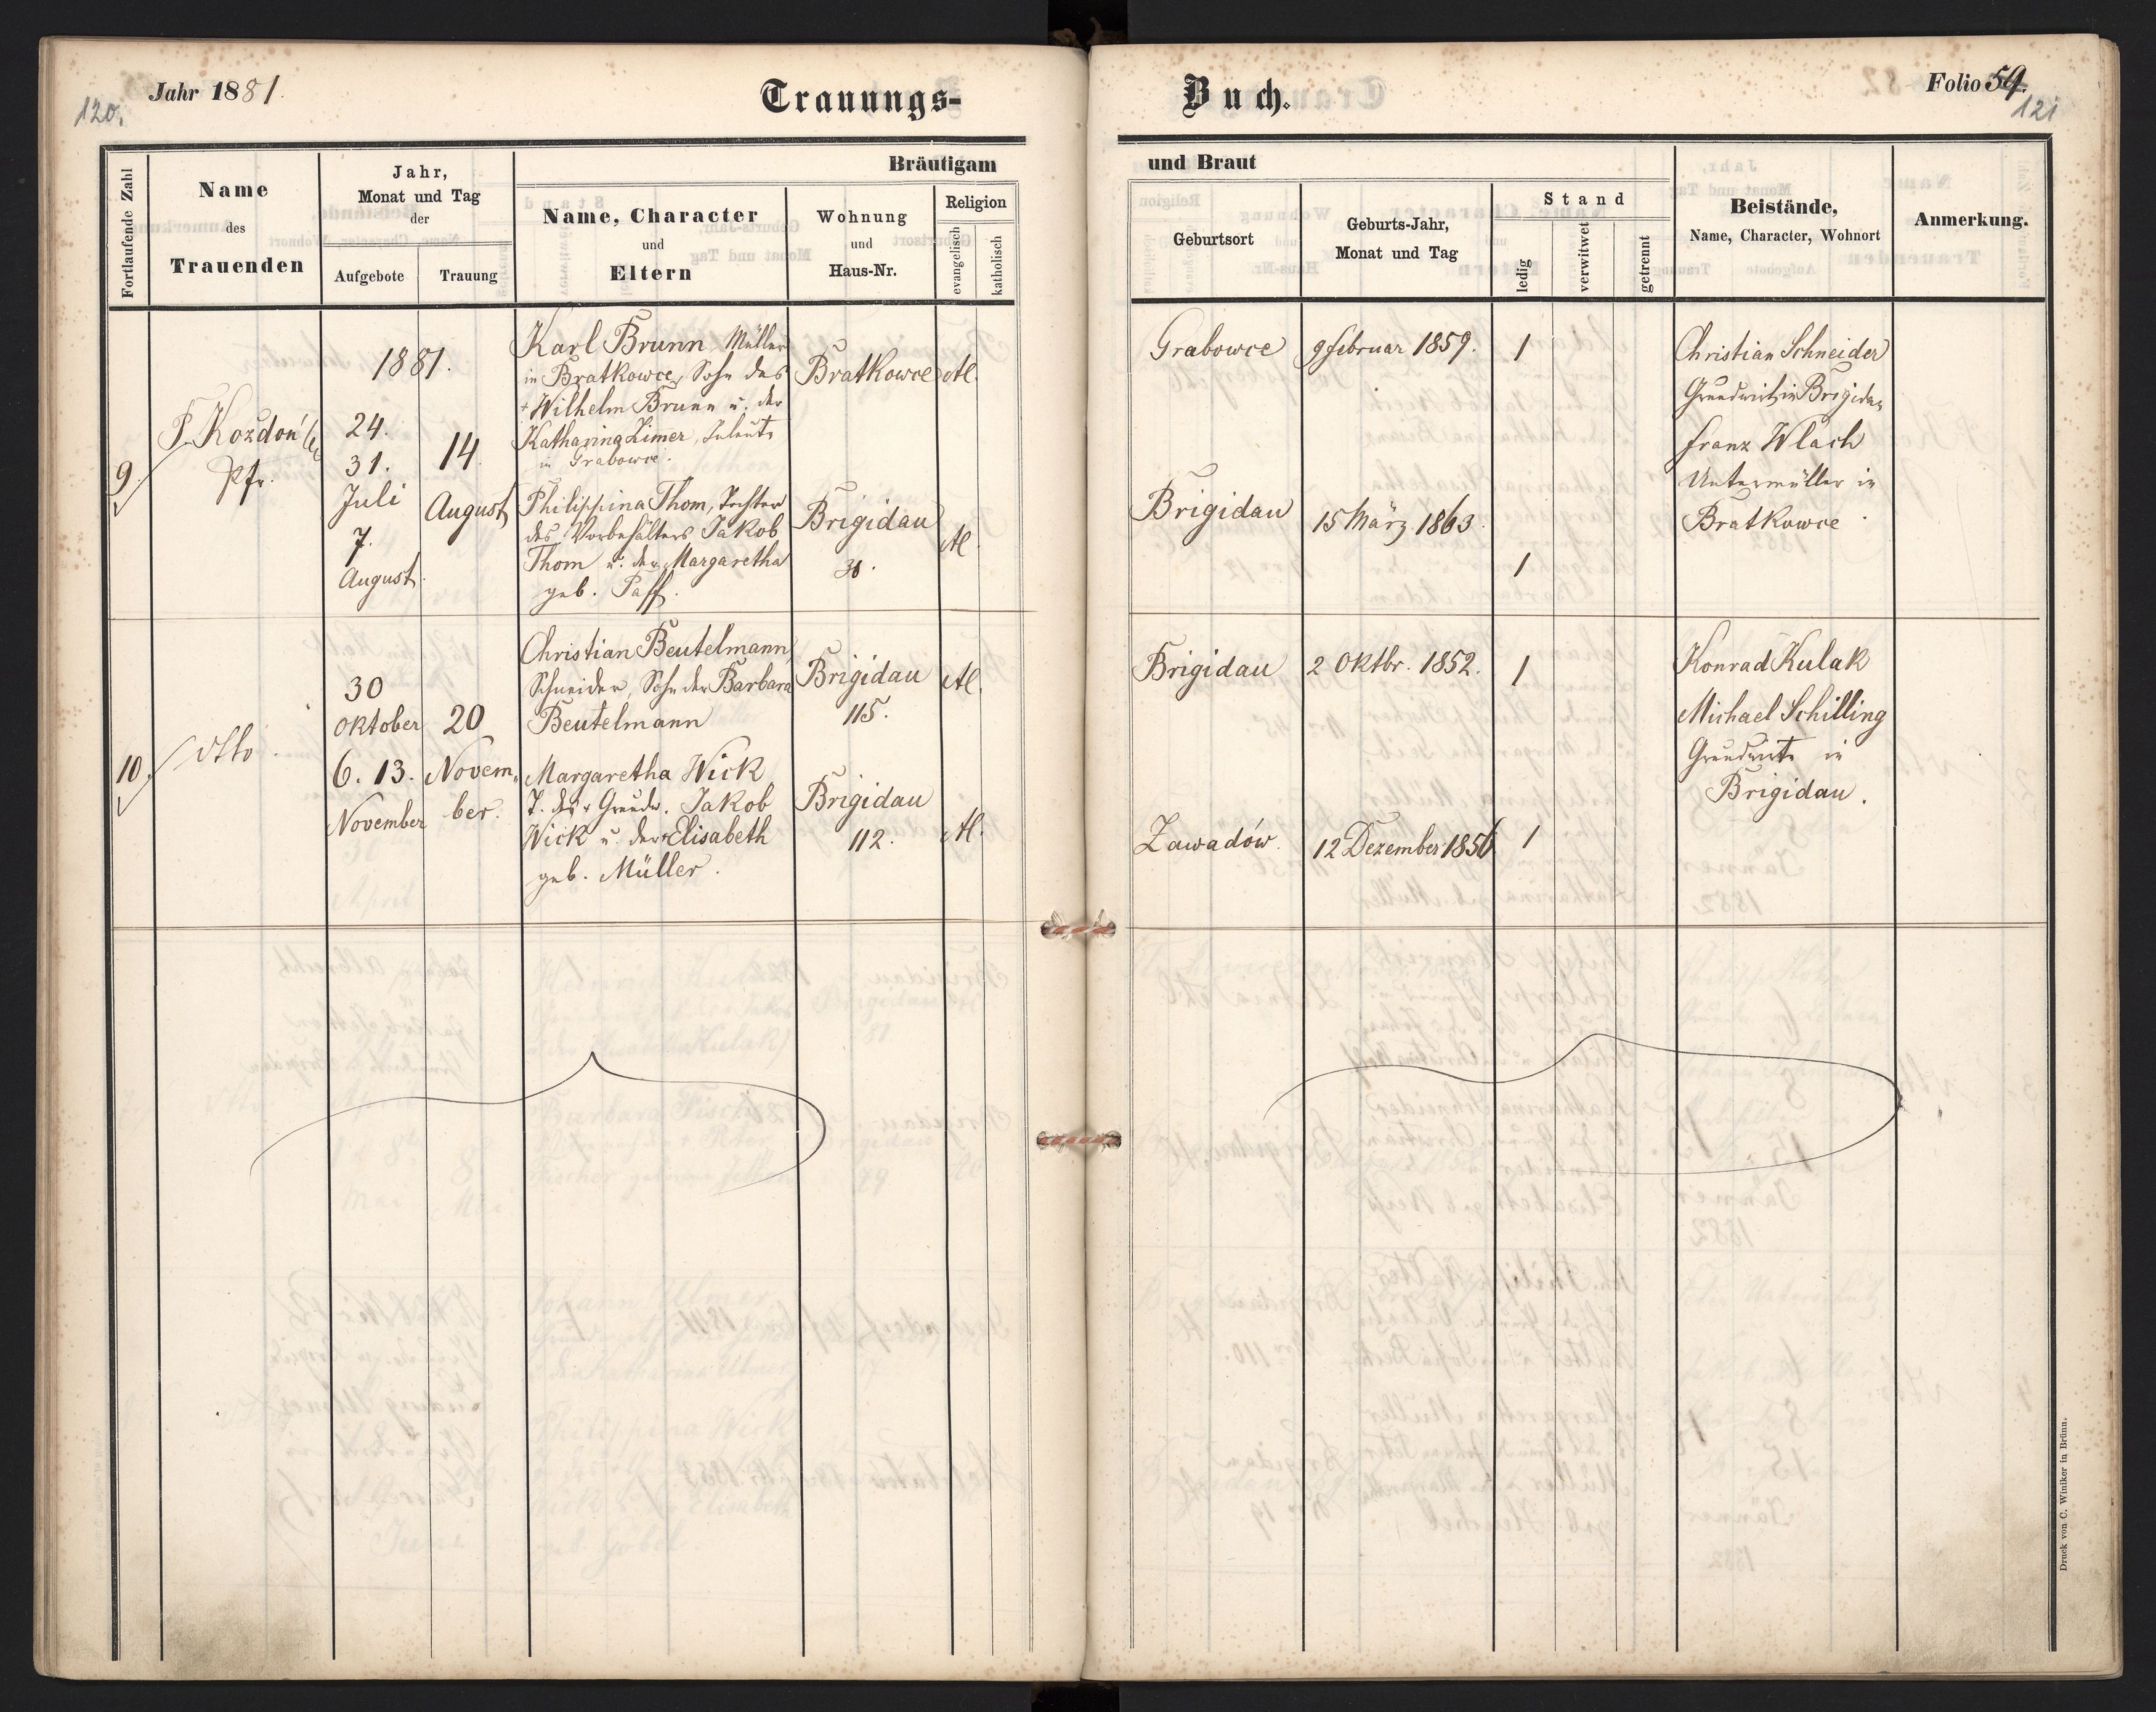 120.
Jahr 1881.
Trauungs-
Fortlaufende Zahl
Name
des
Trauenden
Jahr,
Monat und Tag
der
Aufgebote
Trauung
Bräutigam
Name, Character
und
Eltern
Wohnung
und
Haus-Nr.
Religion
evangelisch
katholisch
9.
Pfr.
1881.
24.
31.
Juli
7.
August.
14.
August
Karl Brunn, Müller
in Bratkowce, Sohn des
+ Wilhelm Brunn u. der
Katharina Zimer,
in Grabowce.
Bratkowce
Philippina Thom, Tochter
des Vorbehälters Jakob
Thom u. der Margaretha
geb. Paff.
Brigidau
10.
dtto.
30
Oktober
6. 13.
November
20
Novem-
ber.
Christian Beutelmann,
Schneider, Sohn der Barbara
Beutelmann
Brigidau
115.
Margaretha Wick
T. des + Grundw. Jakob
Wick u. der + Elisabeth
geb. Müller.
Brigidau
112.
Buch.
Folio 59.
121
und Braut
Geburtsort
Geburts-Jahr,
Monat und Tag
Stand
ledig
verwitwet
getrennt
Beistände,
Name, Character, Wohnort
Anmerkung.
Grabowce
9 Februar 1859.
1
Christian Schneider
Grundwirt in Brigidau
Franz Wlach
Untermüller in
Bratkowce.
Brigidau
15 März 1863.
1
Brigidau
2 Oktbr. 1852.
1
Konrad Kulak
Michael Schilling
Grundwirte in
Brigidau.
Zawadów.
12 Dezember 1856
1
Druck von C. Winiker in Brünn.